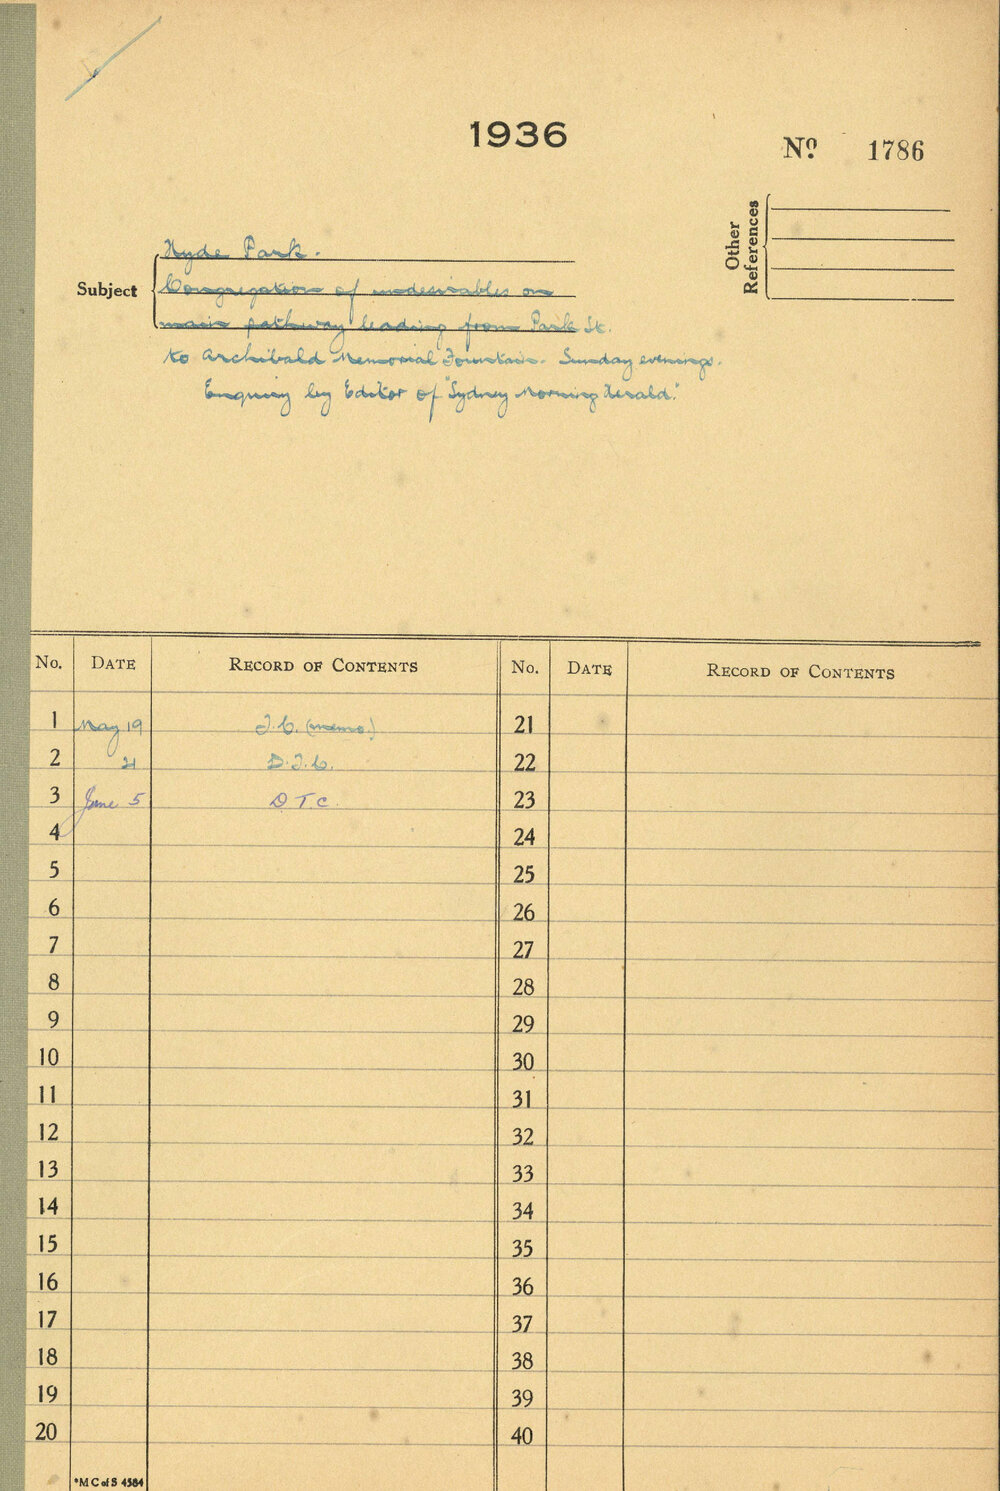 1936
Nº 1786
Other
References
Subject
Hyde Park.
Congregation of undesirables on
main pathway leading from Park St.
to Archibald Memorial Fountain. Sunday evenings.
Enquiry by Editor of "Sydney Morning Herald."
No. DATE RECORD OF CONTENTS No. DATE RECORD OF CONTENTS
1 May 19 T.C. (memo.) 21
2 21 D.T.C. 22
3 June 5 DTC. 23
4 24
5 25
6 26
7 27
8 28
9 29
10 30
11 31
12 32
13 33
14 34
15 35
16 36
17 37
18 38
19 39
20 40
*M C of S 4584